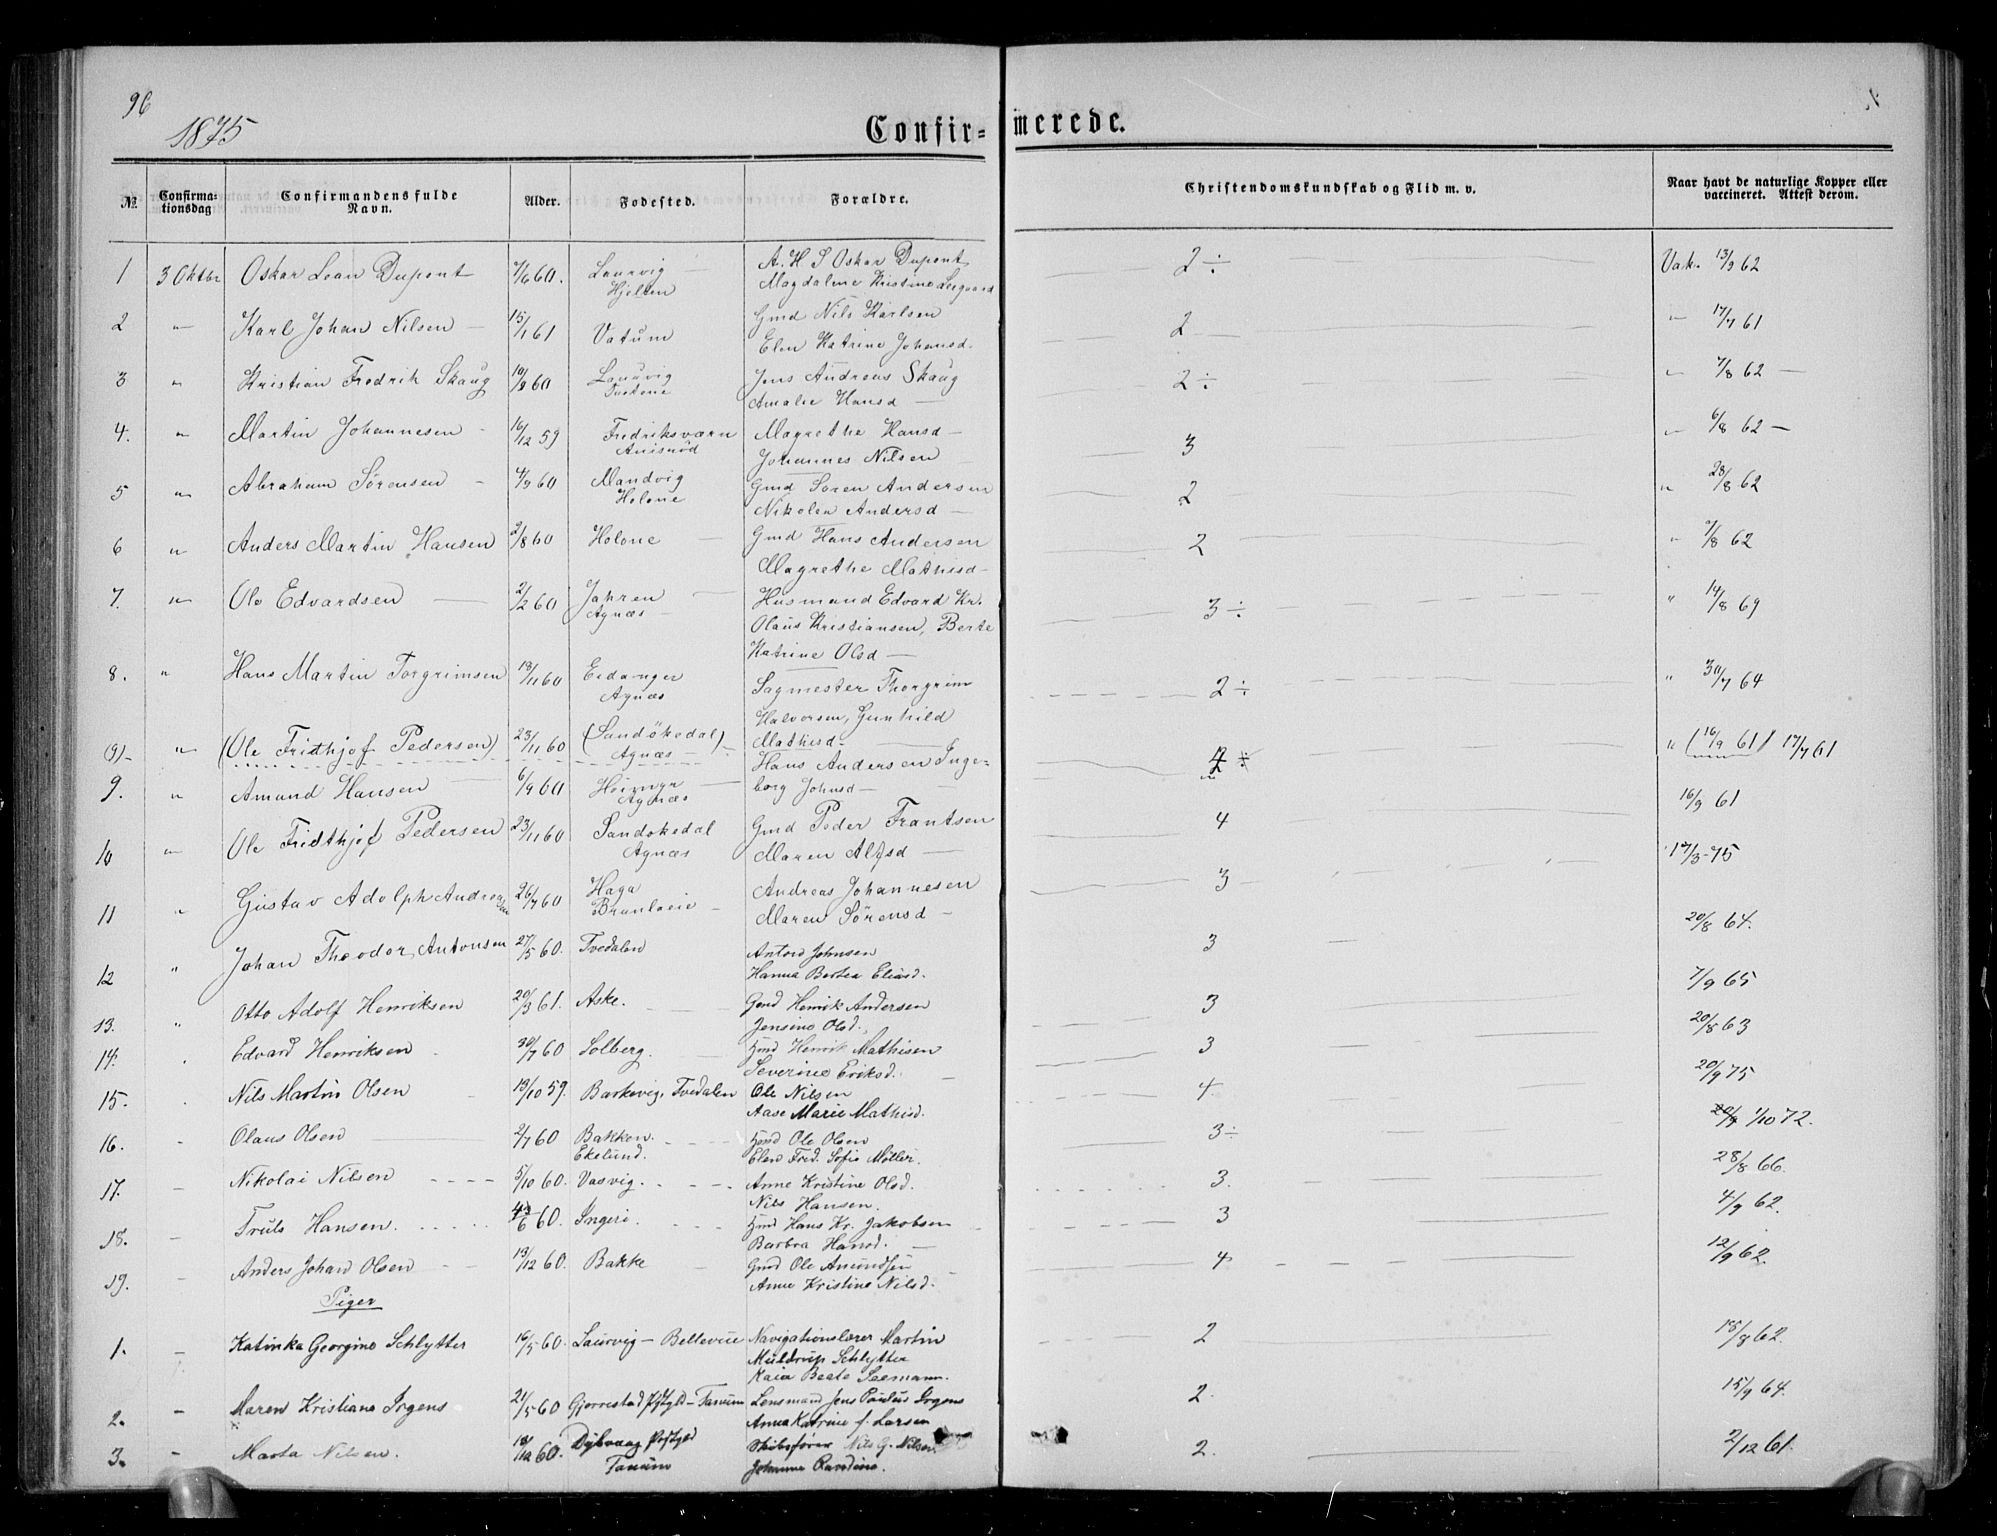 96
1875
Confir-merede.
№ Confirma-tionsdag Confirmandens fulde Navn. Alder. Fødested. Forældre. Christendomskundskab og Flid m. v. Naar havt de naturlige Kopper eller vaccineret. Attest derom.
1 3 Oktbr Oskar Leon Dupont 7/6 60. Laurvig A. H. S Oskar Dupont 2 ÷ Vak. 13/9 62
Hjelten Magdalene Kristine
2 " Karl Johan Nilsen 15/1 61 Vatum Gmd Nils Karlsen 2 " 17/7 61
Elen Katrine Johansd.
3 " Kristian Fredrik Skaug 10/9 60 Laurvig Jens Andreas Skaug 2 ÷ " 7/8 62
Amalie Hansd
4. " Martin Johannesen 16/12 59 Fredriksværn Magrethe Hansd 3 " 6/8 62
Anisrød Johannes Nilsen
5 " Abraham Sørensen 4/9 60 Mandvig Gmd Søren Andersen 2 " 23/8 62
Holone Nikolen Andersd
6 " Anders Martin Hansen 2/8 60 Holone Gmd Hans Andersen 2 " 7/8 62
Magrethe Mathisd
7. " Ole Edvardsen 2/2 60 Jahren Husmand Edvard Kr. 3 ÷ " 14/8 69
Agnæs Olaus Kristiansen, Berte
Katrine Olsd
8. " Hans Martin Torgrimsen 13/11 60 Eidanger Sagmester Thorgrim 2 ÷ " 30/7 64
Agnæs Halvorsen, Gunhild
(9) " (Ole Fridthjof Pedersen) 23/11 60 (Sandøkedal) Mathisd " (16/9 61) 17/7 61
Agnæs
9. " Amund Hansen 6/9 60 Hans Andersen Inge- 16/9 61
Agnæs borg Johnsd
10 " Ole Fridthjof Pedersen 23/11 60 Sandøkedal Gmd Peder Frantsen 4 17/3-75
Agnæs Maren Alfsd
11 " Gustav Adolph Andreasen 26/7 60 Haga Andreas Johannesen 3 20/8 64.
Maren Sørensd
12 " Johan Theodor Antonsen 27/5 60. Tvedalen Anton Johnsen 3 7/9 65
Hanna Bertea Eliasd.
13. " Otto Adolf Henriksen 20/3 61. Aske. Gmd Henrik Andersen 3 20/8 63
Jensine Olsd.
14. Edvard Henriksen 30/7 60 Solberg. Hmd Henrik Mathisen 3 20/9 75
Severine Eriksd.
15. Nils Martin Olsen 13/10 59. Barkevig, Tvedalen Ole Nilsen 4. 1/10 72.
Aase Marie Mathisd.
16. Olaus Olsen 2/7 60 Bakken. Hmd Ole Olsen 3 ÷ 28/8 66.
Ekelund. Elen Fred. Sofie Møller.
17. Nikolai Nilsen 5/10 60. Vasvig. Anne Kristine Olsd. 3. 4/9 62.
Nils Hansen.
18. Truls Hansen. 60. Ingeri. Hmd Hans Kr. Jakobsen 3 12/9 62.
Barbra Hansd.
19. Anders Johan Olsen 13/12 60. Bakke Gmd Ole Amundsen 4
Anne Kristine Nilsd.
Piger
1. Katinka Georgine Schlytter 16/5 60. Laurvig - Bellevue Navigationslærer Martin 2 18/8 62.
Muldrup Schlytter
Kaia Beate Seemann.
2. Maren Kristiane Irgens 21/5 60 Gjerrestad Pstgld - Tanum Lensmand Jens Paulus Irgens 2. 15/9 64.
Anna Katrine f. Larsen
3. Marta Nilsen. 18/12 60. Dybvaag Pstgld Skibsfører Nils G. Nilsen 2. 2/12 61.
Tanum Johanne